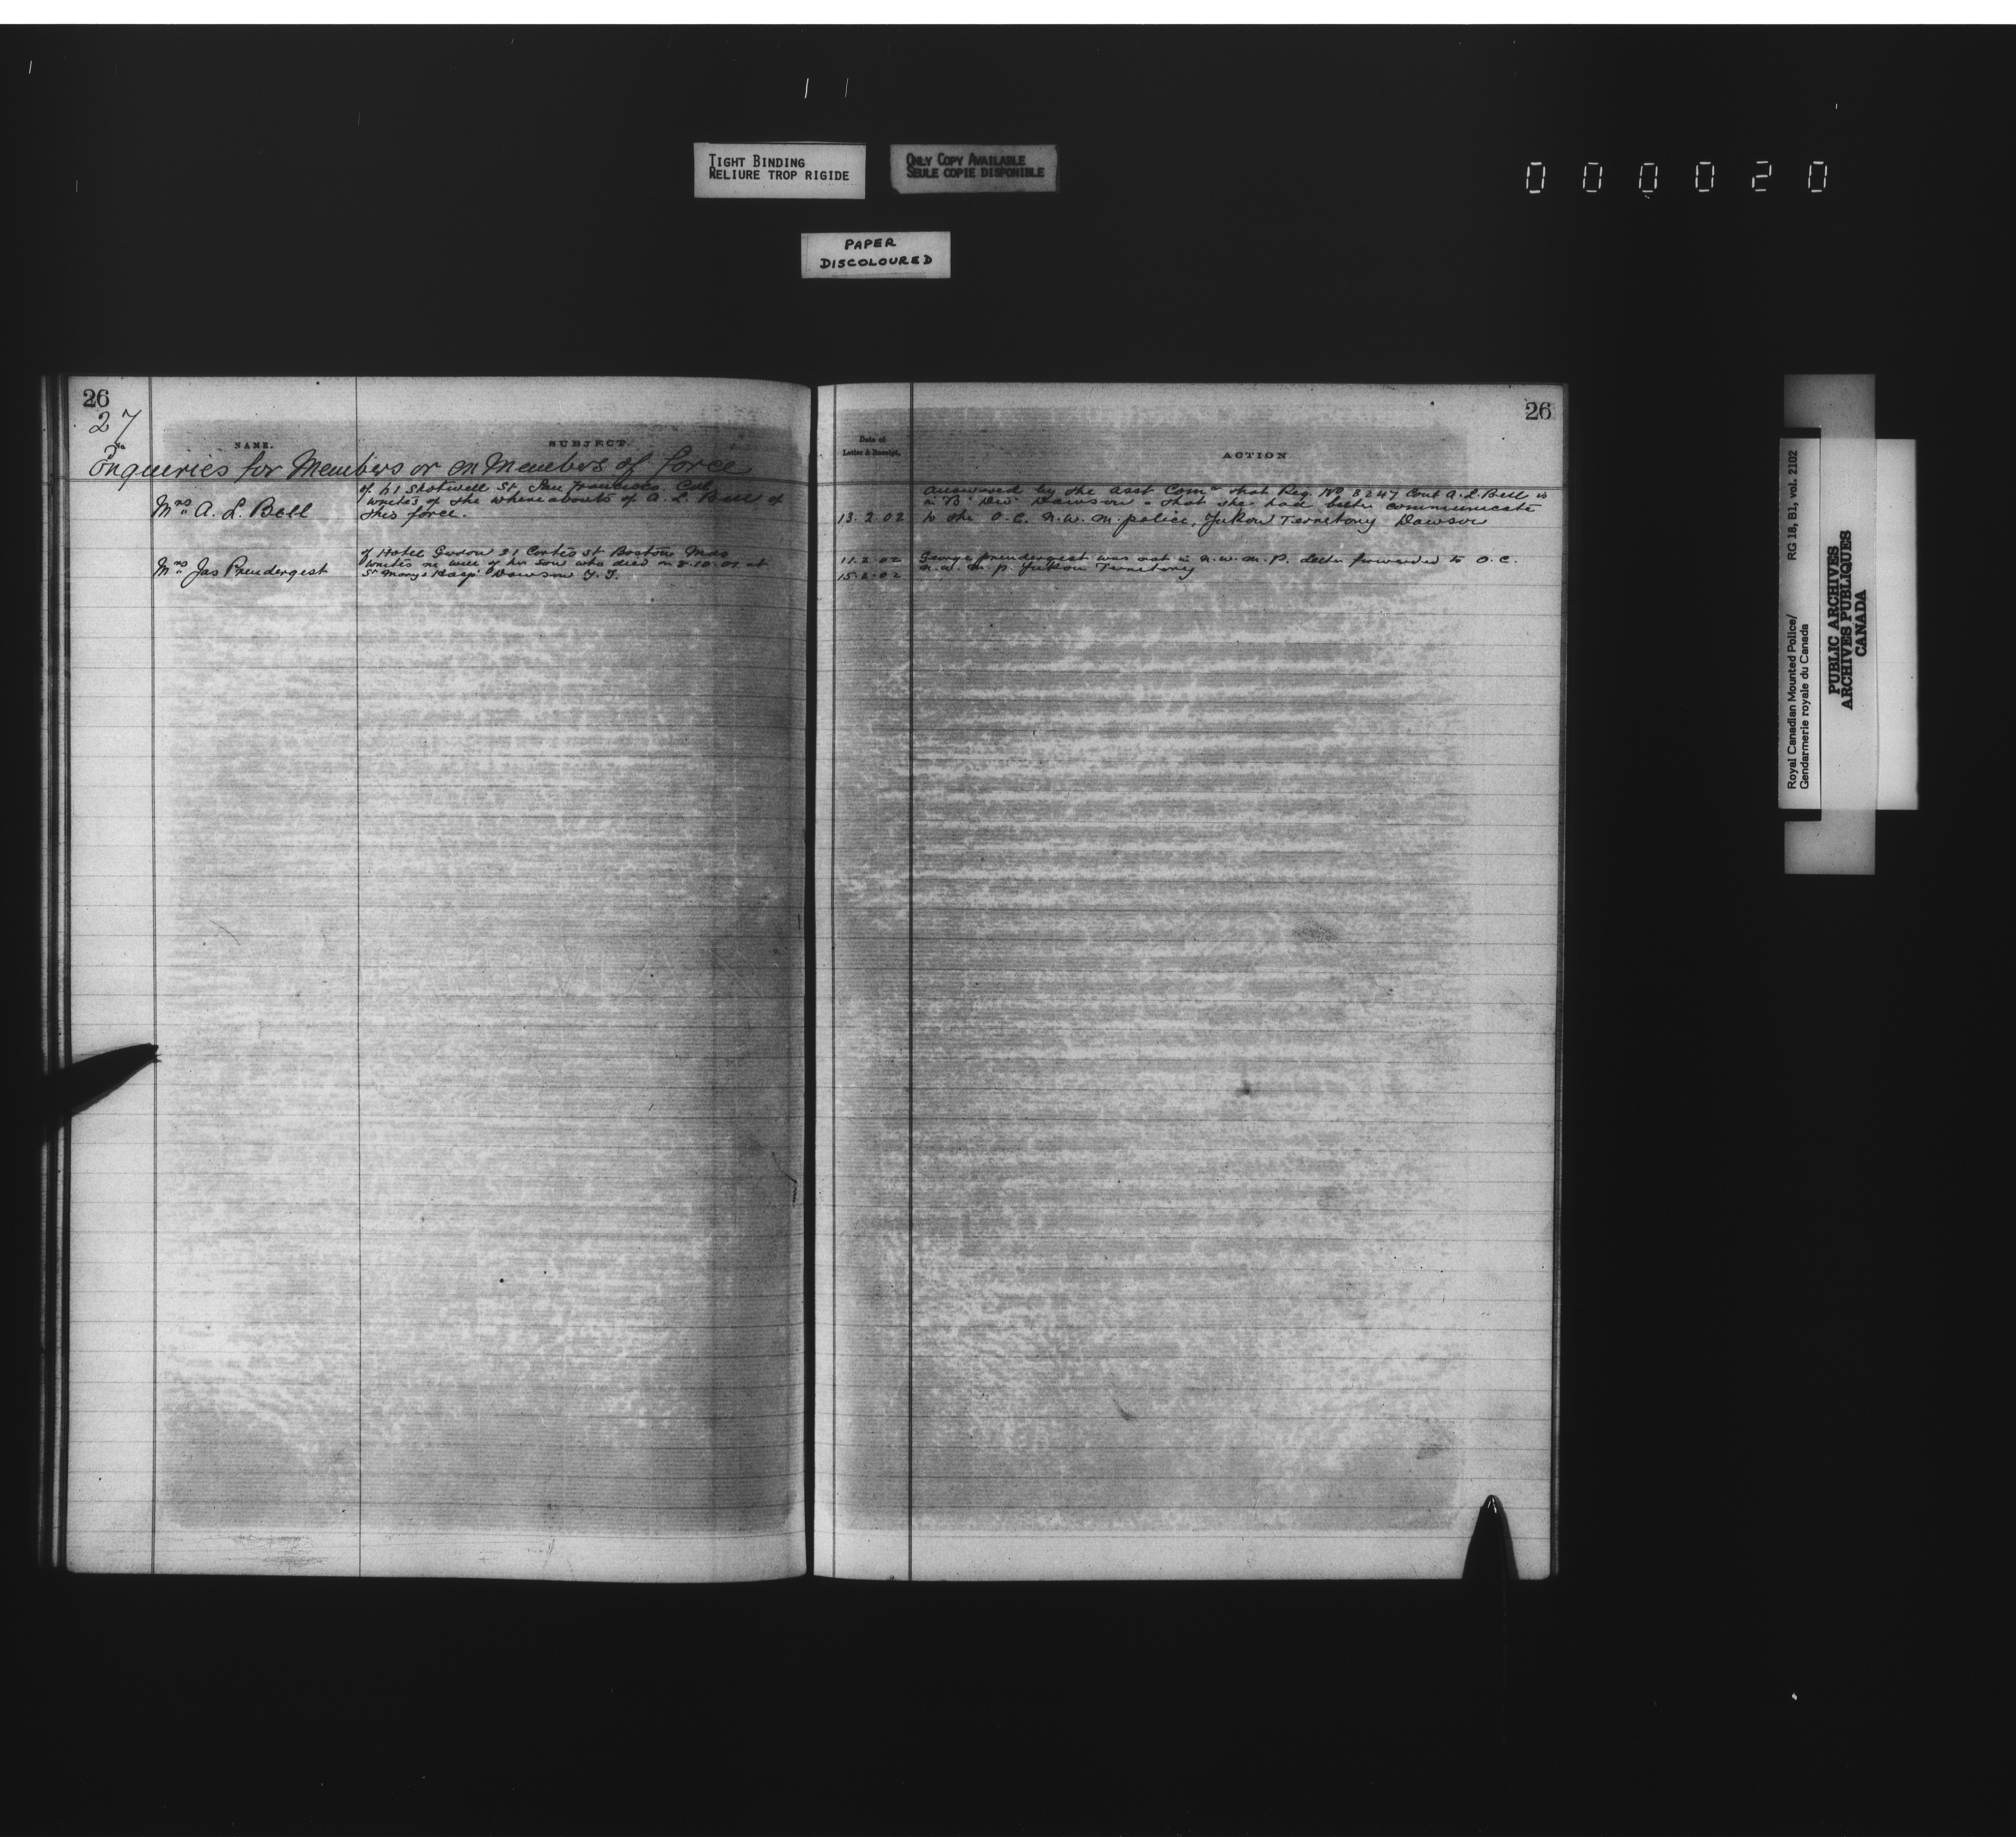 TIGHT BINDING
RELIURE TROP RIGIDE
ONLY COPY AVAILABLE
SEULE COPIE DISPONIBLE
000020
PAPER
DISCOLOURED
26
27
No
NAME.
SUBJECT.
Enqueries for Members or on Members of force
Mrs A. L. Bell
of 61 Shotwell St. San Francisco Cal
writes of the whereabouts of A. L. Bell of
this force.
Mrs Jas Prendergest
of Hotel Gordon 21 Cortes St Boston Mas
writes re will of her son who died on 8.10.01 at
St Marys Hosp. Dawson Y.T.
26
Date of
Letter & Receipt.
ACTION
answered by the Asst Comr that Reg. No 3247 Const A. L. Bell is
in "B" Div Dawson & that she had better communicate
13.2.02 to the O.C. N.W.M. police, Yukon Territory Dawson
11.2.02 George prendergest was not in N.W.M.P. letter forwarded to O.C.
15.2.02 N.W.M.P. Yukon Territory
Royal Canadian Mounted Police/ RG 18, B1, vol. 2102
Gendarmerie royale du Canada
PUBLIC ARCHIVES
ARCHIVES PUBLIQUES
CANADA